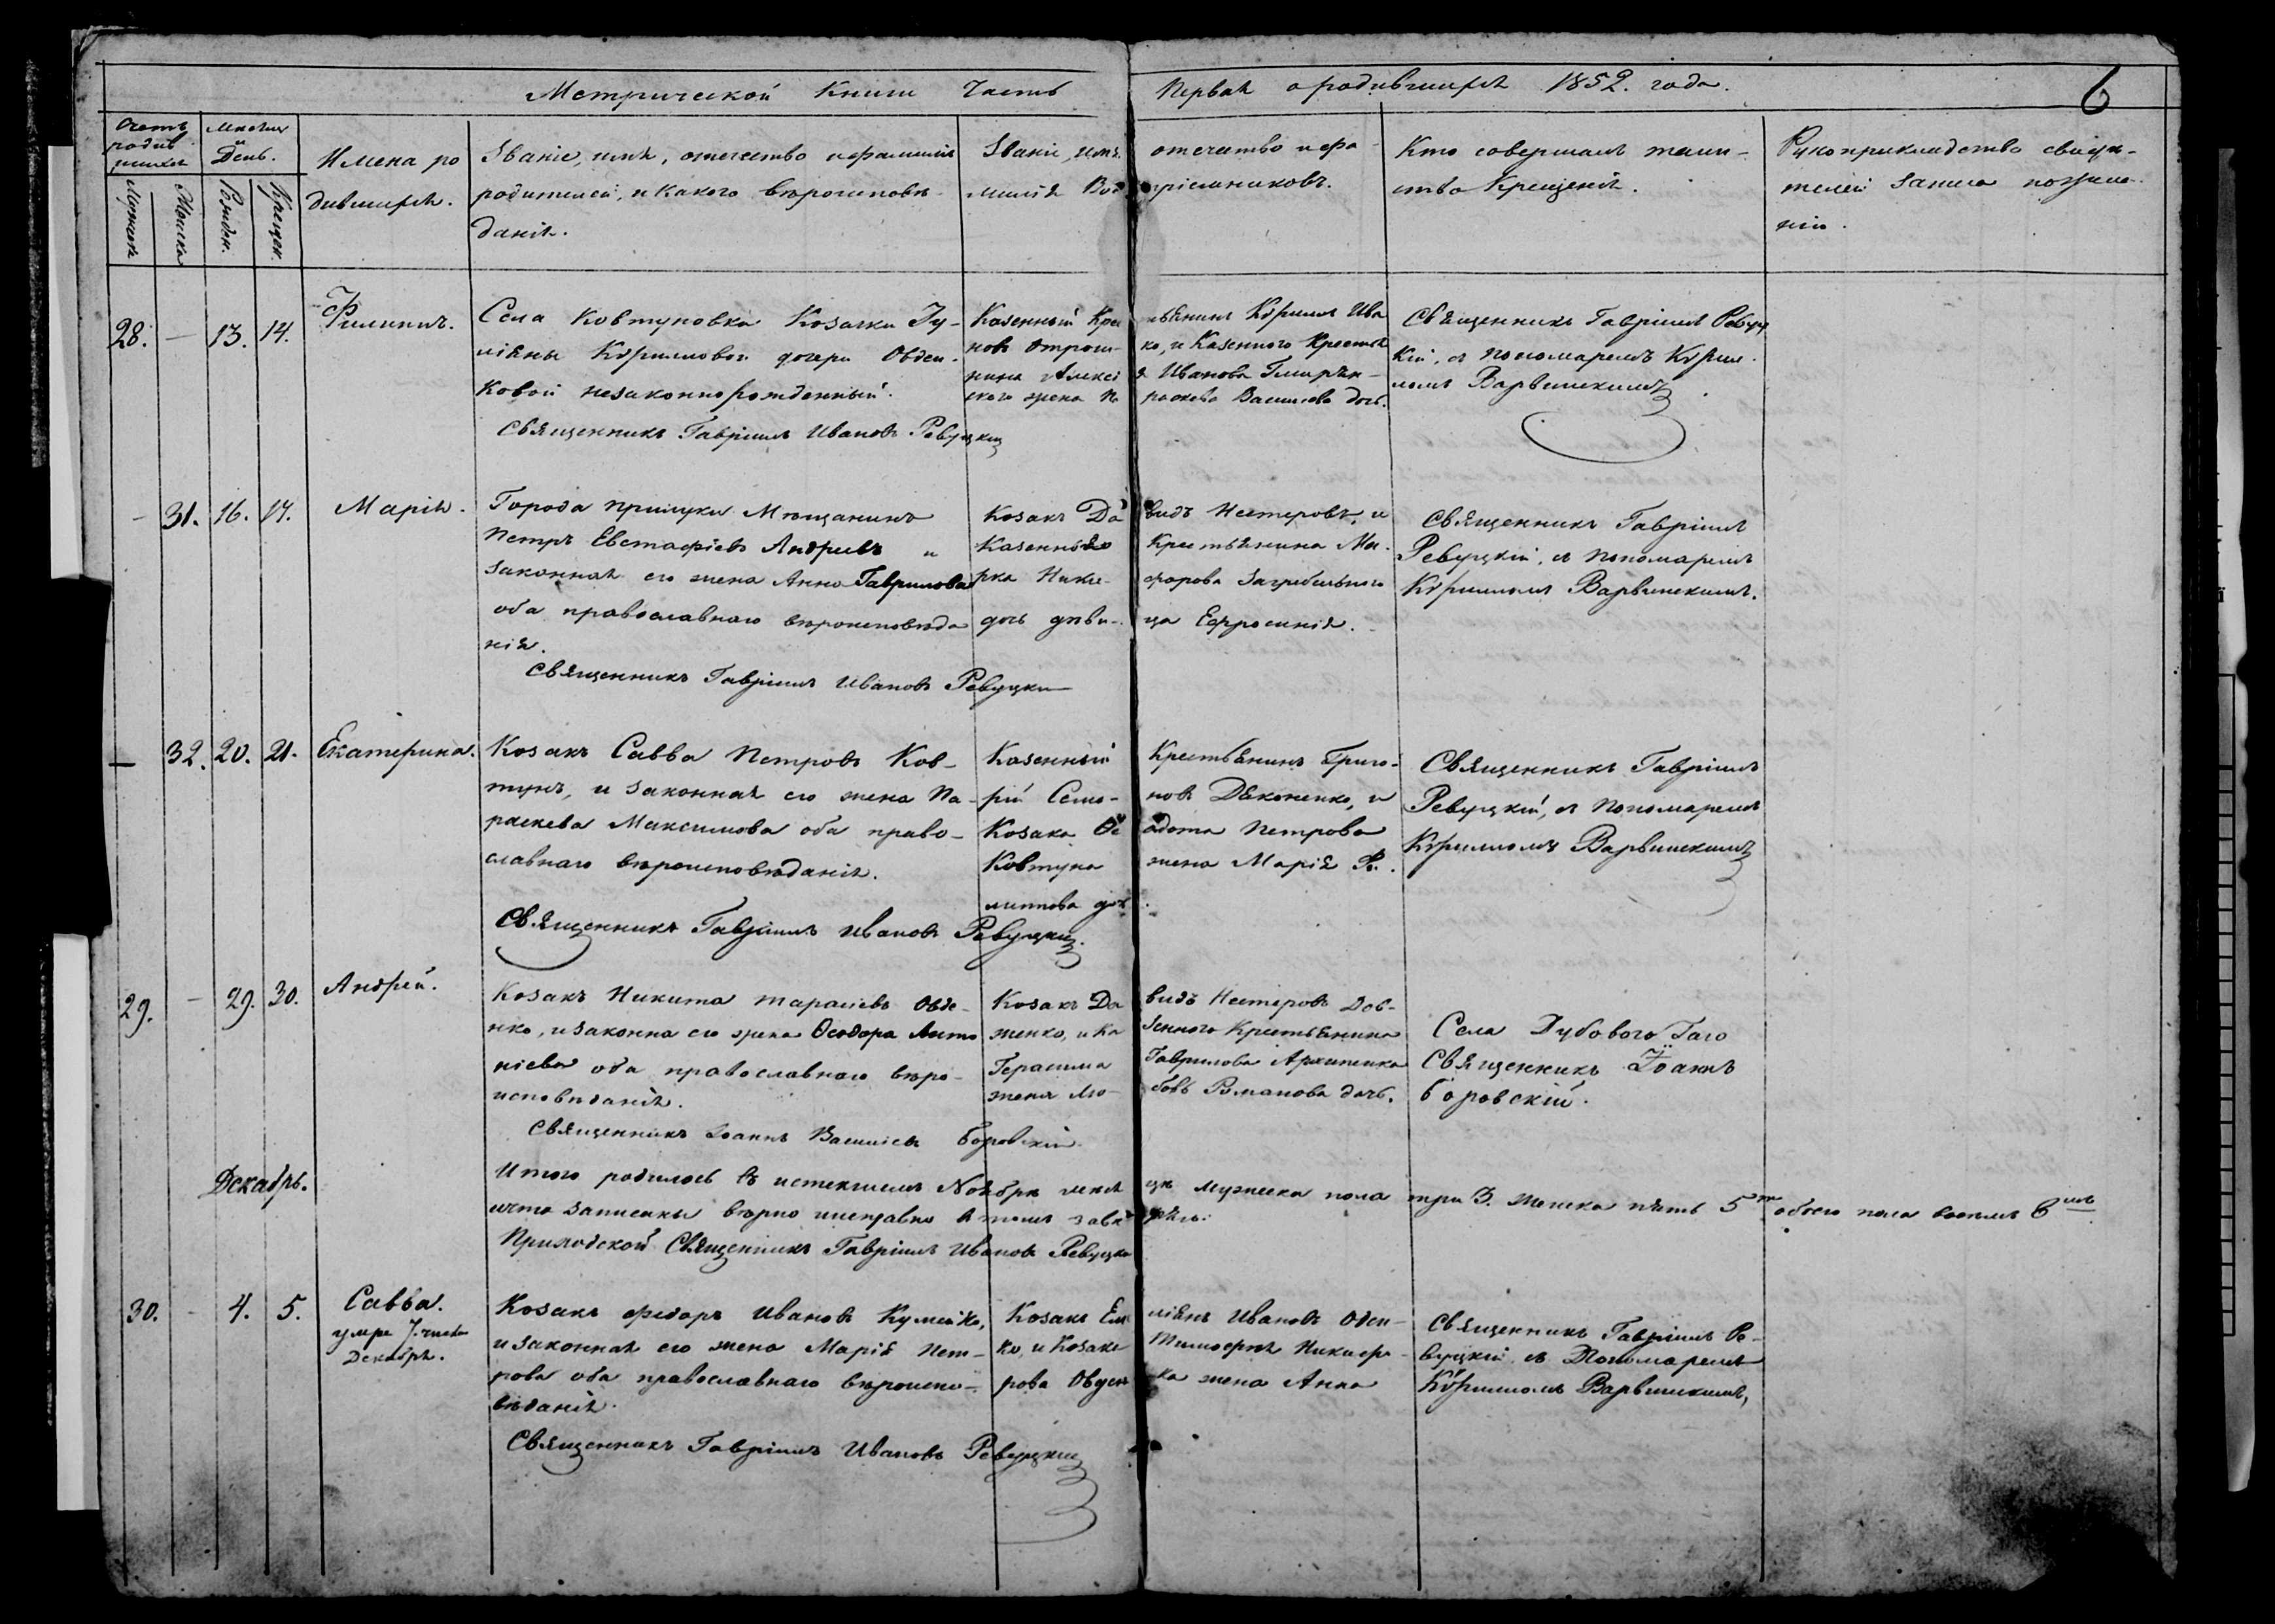 Метрической Книги Часть Первая о родившихся 1852. года.
6
Счетъ родившихся
Мѣсяцъ и День.
Мужеска
Женска
Рожден.
Крещен.
Имена родившихся.
Званіе, имя, отечество и фамилія
родителей, и какого вѣроисповѣ-
данія.
Званіе, имя, отечество и фа-
милія Воспріемниковъ.
Кто совершалъ таин-
ство Крещенія.
Рукоприкладство свидѣ-
телей записа по желанію.
28. — 13. 14. Филиппъ.
Села Ковтуновка Козачки Іу-
ліяны Кѵрилловой дочери Овдеен-
ковой незаконнорожденный.
Священникъ Гавріилъ Ивановъ Ревуцкій
Казенный Крестьянинъ Кѵрилъ Ива
новъ Отрошко, и Казенного Крестья
нина Алексѣя Иванова Гмирян-
ского жена Параскева Васильева доч.
Священникъ Гавріилъ Ревуц
кій, съ пономаремъ Кѵрил-
ломъ Варвинскимъ.
— 31. 16. 17. Марія.
Города Прилуки Мѣщанинъ
Петръ Евстафіевъ Андріевъ и
законная его жена Анна Гаврилова
оба православнаго вѣроисповѣда
нія.
Священникъ Гавріилъ Ивановъ Ревуцкій
Козакъ Давидъ Нестеровъ, и
Казенного Крестьянина Ма-
рка Никифорова Загребельного
дочь дѣвица Евфросинія.
Священникъ Гавріилъ
Ревуцкій, съ пономаремъ
Кѵрилломъ Варвинскимъ.
— 32. 20. 21. Екатерина.
Козакъ Савва Петровъ Ков-
тунъ, и законная его жена Па-
раскева Максимова оба право-
славнаго вѣроисповѣданія.
Священникъ Гавріилъ Ивановъ Ревуцкій.
Казенный Крестьянинъ Григо-
рій Семеновъ Дяконенко, и
Козака Ѳеодота Петрова
Ковтуна жена Марія Фи-
липпова доч.
Священникъ Гавріилъ
Ревуцкій, съ пономаремъ
Кѵрилломъ Варвинскимъ
29. — 29. 30. Андрей.
Козакъ Никита Тарасіевъ Овде-
нко, и законна его жена Ѳеодора Анто
ніева оба православнаго вѣро-
исповѣданія.
Священникъ Іоаннъ Васильевъ Боровскій.
Козакъ Давидъ Нестеровъ Дов-
женко, и Казенного Крестьянина
Герасима Гаврилова Архипенка
жена Любовь Романова дочь.
Села Дубового Гаго
Священникъ Іоаннъ
Боровскій.
Декабрь.
Итого родилось въ истекшемъ Ноябрѣ мѣсяцѣ мужеска пола три 3. женска пять 5 обоего пола восемь 8
и что записаны вѣрно и исправно в томъ завѣряю:
Приходской Священникъ Гавріилъ Ивановъ Ревуцкій
30. — 4. 5. Савва.
умре 7. числа
Декабря.
Козакъ Федоръ Ивановъ Кумейко,
и законная его жена Марія Пет-
рова оба православнаго вѣроиспо-
вѣданія.
Священникъ Гавріилъ Ивановъ Ревуцкій
Козакъ Емиліянъ Ивановъ Овден-
ко, и Козака Тимофея Никифо-
рова Овденка жена Анна
Священникъ Гавріилъ Ре-
вуцкій съ Пономаремъ
Кѵрилломъ Варвинскимъ,